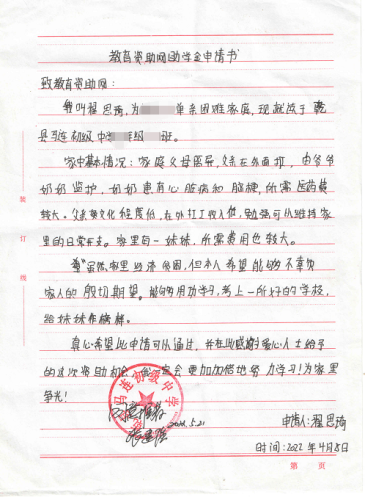 教育资助网助学金申请书
致教育资助网：
我叫程思琦，为 单亲困难家庭，现就读于乾
县马连初级中 级 班。
家中基本情况：家庭父母离异，父亲在外面打，由爷爷
奶奶监护，奶奶患有心脏病和脑梗，所需医药费
较大。父亲文化程度低，在外打工收入低，勉强可以维持家
里的日常开支。家里有一妹妹，所需费用也较大。
虽然家里经济贫困，但本人希望能够不辜负
家人的殷切期望。能够努力学习，考上一所好的学校，
给妹妹作榜样。
真心希望此申请可以通过，并在此感谢爱心人士给予
的这次资助机会，我一定会更加加倍地努力学习！为家里
争光！
马连初级中学
2022.5.21
申请人：程思琦
时间：2022年4月8日
装
订
线
第 页